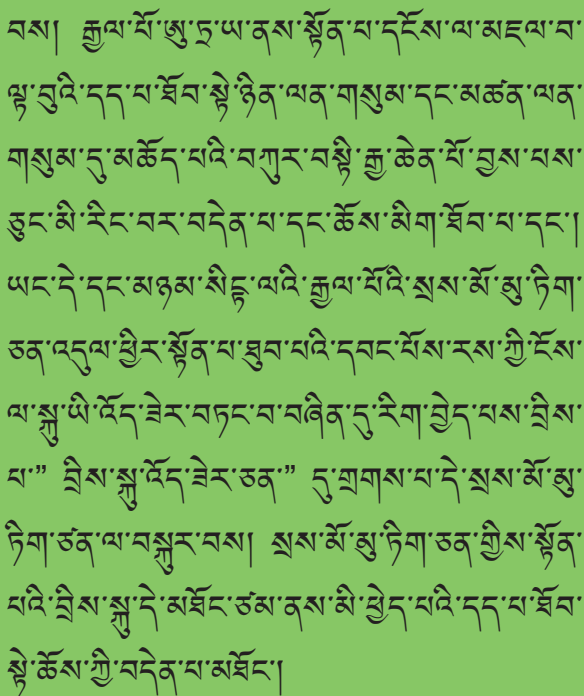 བས། རྒྱལ་པོ་ཨུ་ཏྲ་ཡ་ནས་སྟོན་པ་དངོས་ལ་མཇལ་བ་
ལྟ་བུའི་དད་པ་ཐོབ་སྟེ་ཉིན་ལན་གསུམ་དང་མཚན་ལན་
གསུམ་དུ་མཆོད་པའི་བཀུར་བསྟི་རྒྱ་ཆེན་པོ་བྱས་པས་
ཅུང་མི་རིང་བར་བདེན་པ་དང་ཆོས་མིག་ཐོབ་པ་དང་།
ཡང་དེ་དང་མཉམ་སིངྒ་ལའི་རྒྱལ་པོའི་སྲས་མོ་མུ་ཏིག་
ཅན་འདུལ་ཕྱིར་སྟོན་པ་ཐུབ་པའི་དབང་པོས་རས་ཀྱི་ངོས་
ལ་སྐུ་ཡི་འོད་ཟེར་བཏང་བ་བཞིན་དུ་རིག་བྱེད་པས་བྲིས་
པ་” བྲིས་སྐུ་འོད་ཟེར་ཅན་” དུ་གྲགས་པ་དེ་སྲས་མོ་མུ་
ཏིག་ཙན་ལ་བསྐུར་བས། སྲས་མོ་མུ་ཏིག་ཅན་གྱིས་སྟོན་
པའི་བྲིས་སྐུ་དེ་མཐོང་ཙམ་ནས་མི་ཕྱེད་པའི་དད་པ་ཐོབ་
སྟེ་ཆོས་ཀྱི་བདེན་པ་མཐོང་།